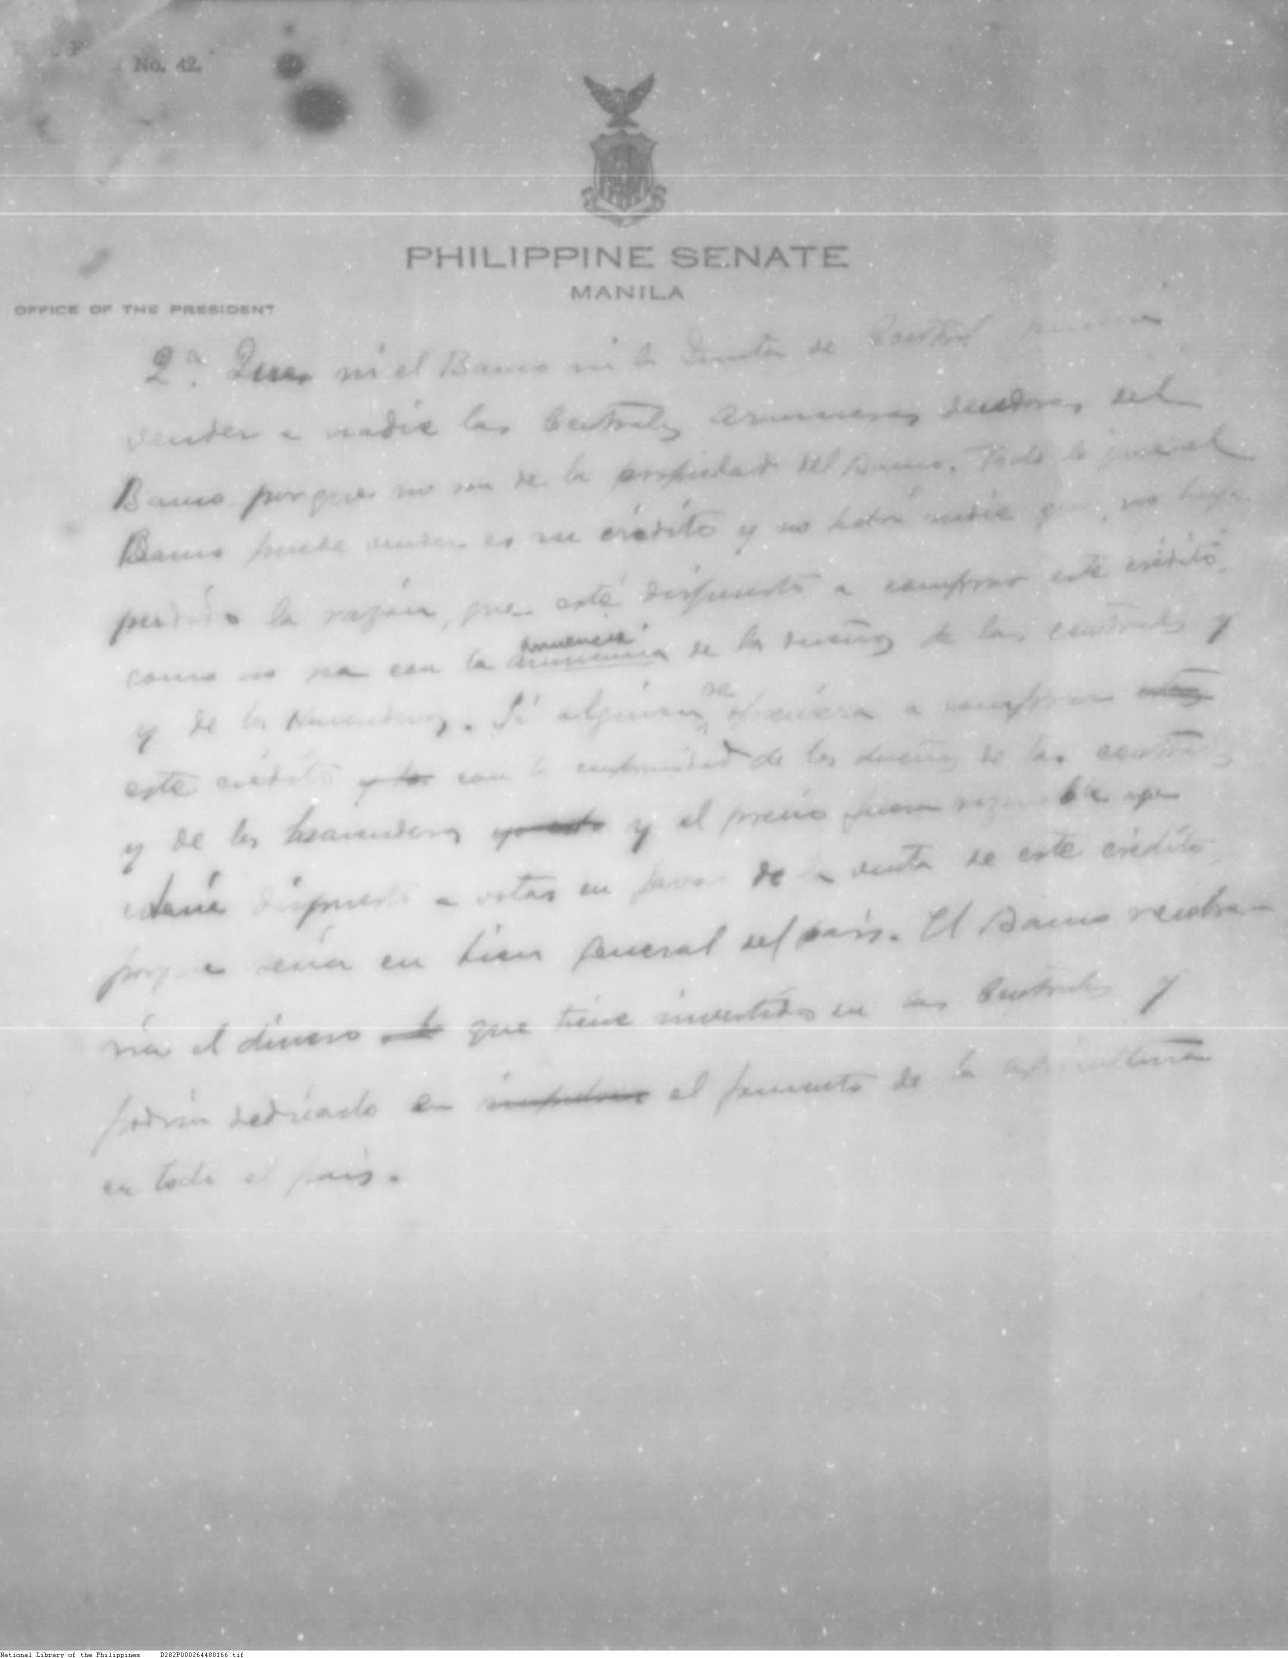 No. 42.
PHILIPPINE SENATE
MANILA
OFFICE OF THE PRESIDENT
2a. Que ni el Banco ni la Junta de Control
vender a nadie las Centrales azucareras deudoras del
Banco porque no son de la propiedad del Banco. Todo lo que el
Banco puede vender es su crédito y no habrá nadie que, no haya
perdido la razón, que esté dispuesto a comprar este crédito
como no sea con la anuencia de los dueños de las centrales y
y de los hacenderos. Si alguien se a comprar
este crédito con la conformidad de los dueños de las centrales
y de los hacenderos y el precio fuera razonable yo
estaría dispuesto a votar en favor de la venta de este crédito
porque sería en bien general del país. El Banco recobra-
ría el dinero que tiene invertido en las Centrales y
podría dedicarlo en el fomento de la agricultura
en todo el país.
National Library of the Philippines D282P000264480166.tif